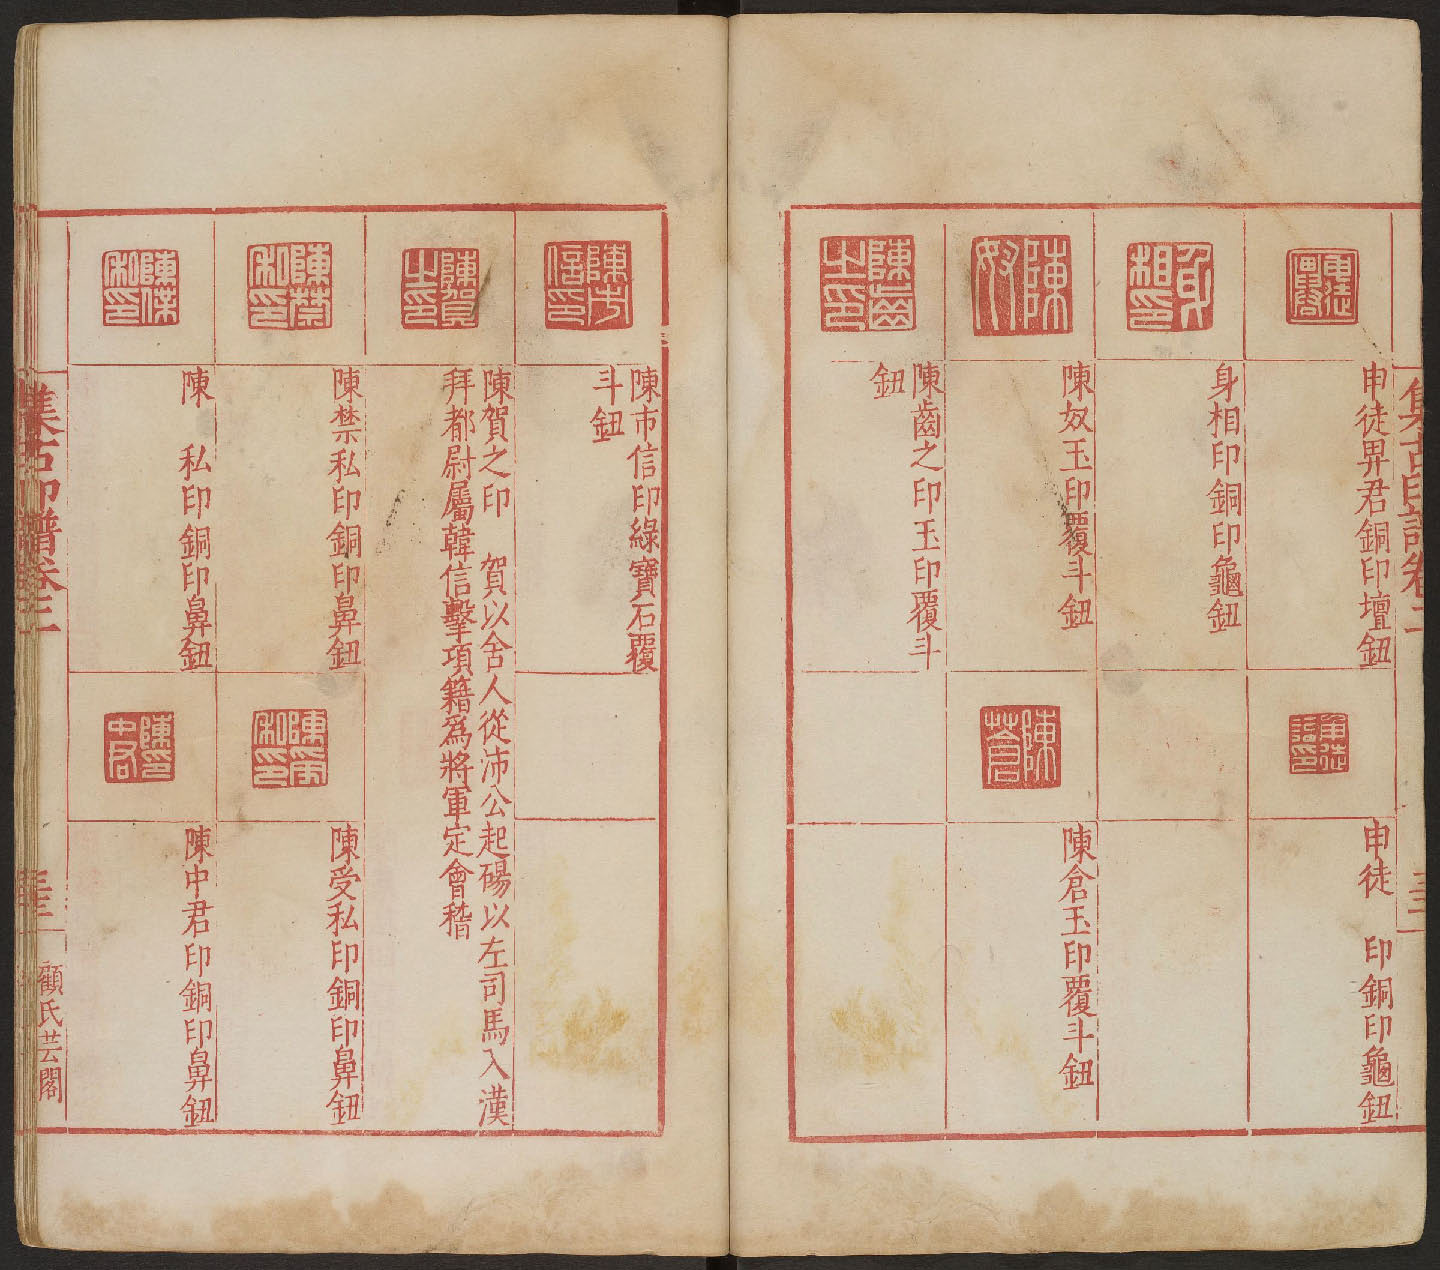 集古印譜卷二
申徒畀君銅印壇鈕
申徒　印銅印龜鈕
身相印銅印龜鈕
陳奴玉印覆斗鈕
陳倉玉印覆斗鈕
陳齒之印玉印覆斗
鈕
陳市信印綠寶石覆
斗鈕
陳賀之印　賀以舍人從沛公起碭以左司馬入漢
拜都尉屬韓信擊項籍爲將軍定會稽
陳禁私印銅印鼻鈕
陳受私印銅印鼻鈕
陳　私印銅印鼻鈕
陳中君印銅印鼻鈕
集古印譜卷二
顧氏芸閣